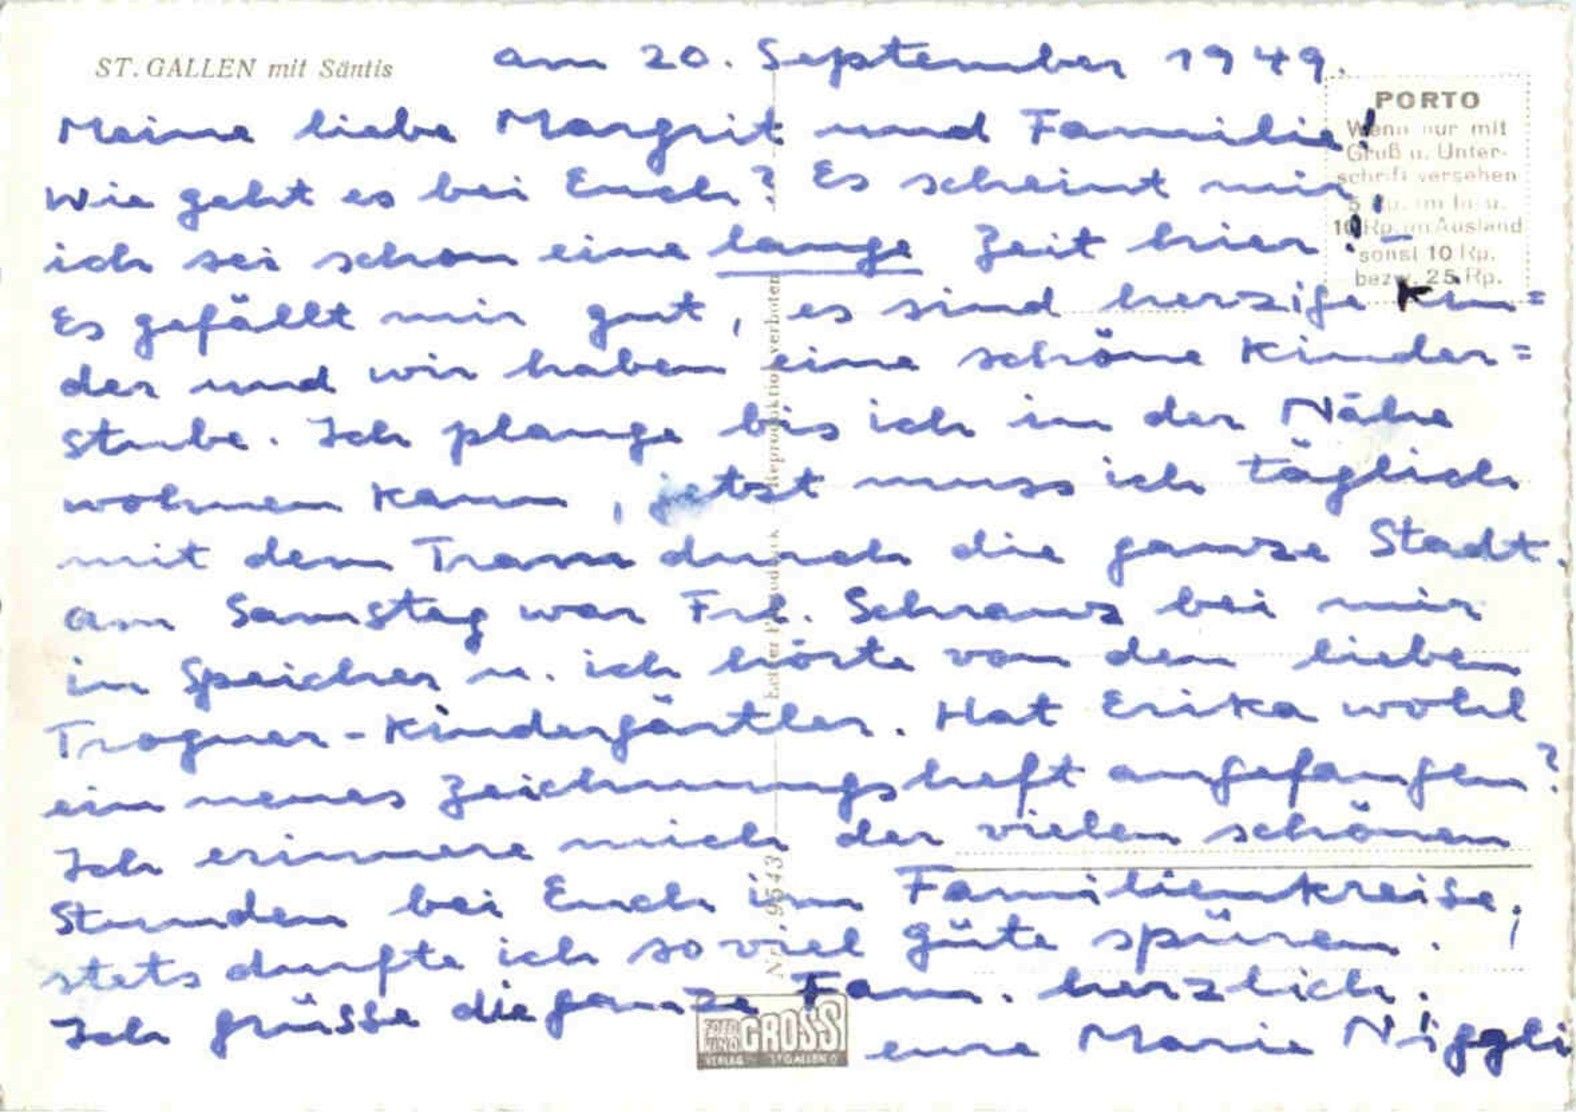 ST. GALLEN mit Säntis
am 20. September 1949.
Meine liebe Margrit und Familie!
Wie geht es bei Euch? Es scheint mir,
ich sei schon eine lange Zeit hier! -
Es gefällt mir gut, es sind herzige Kin=
der und wir haben eine schöne Kinder=
stube. Ich plange bis ich in der Nähe
wohnen kann, jetzt muss ich täglich
mit dem Tram durch die ganze Stadt.
Am Samstag war Frl. Schranz bei mir
in Speicher u. ich hörte von den lieben
Trogner-Kindergärtler. Hat Erika wohl
ein neues Zeichnungsheft angefangen?
Ich erinnere mich der vielen schönen
Stunden bei Euch im Familienkreise,
stets durfte ich so viel Güte spüren.
Ich grüsse die ganze Fam. herzlich.
eure Marie Niggli
PORTO
Wenn nur mit
Gruß u. Unter-
schrift versehen
5 Rp. im In- u.
10 Rp. im Ausland
sonst 10 Rp.
bezw. 25 Rp.
Reproduktion verboten
Nr. 9543
GROSS
VERLAG ST. GALLEN